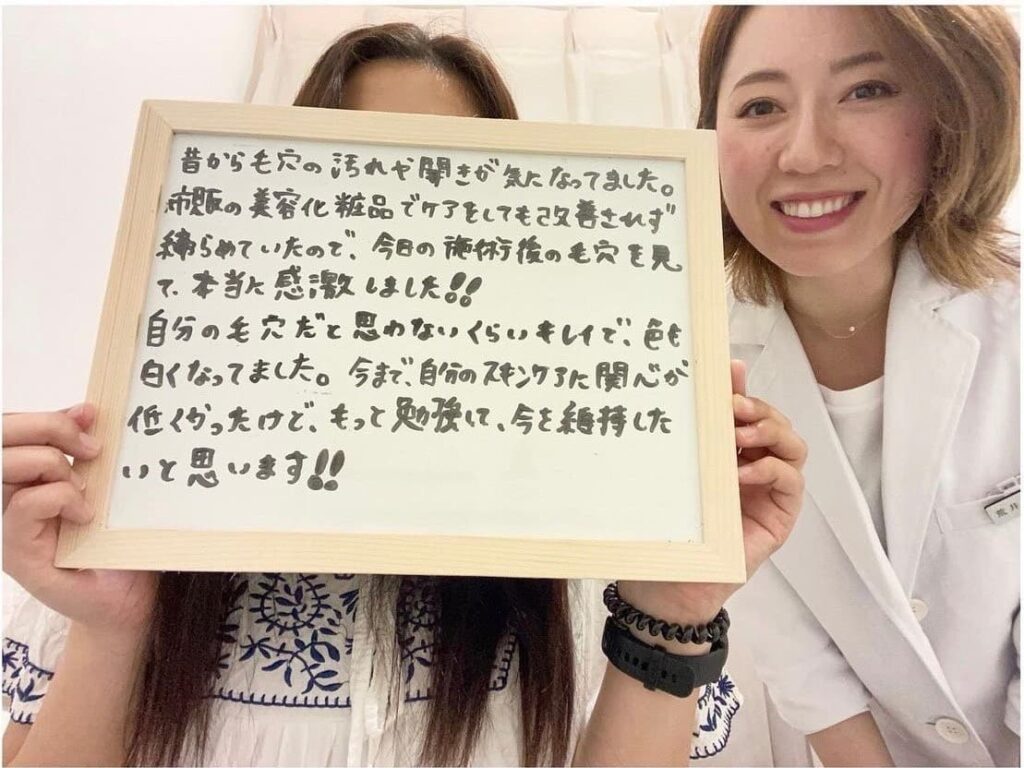 昔から毛穴の汚れや開きが気になってました。
市販の美容化粧品でケアをしても改善されず
締らめていたので、今日の施術後の毛穴を見
て、本当に感激しました!!
自分の毛穴だと思わないくらいキレイで、色も
白くなってました。今まで、自分のスキンケアに関心が
低くかったけど、もっと勉強して、今を維持した
いと思います!!